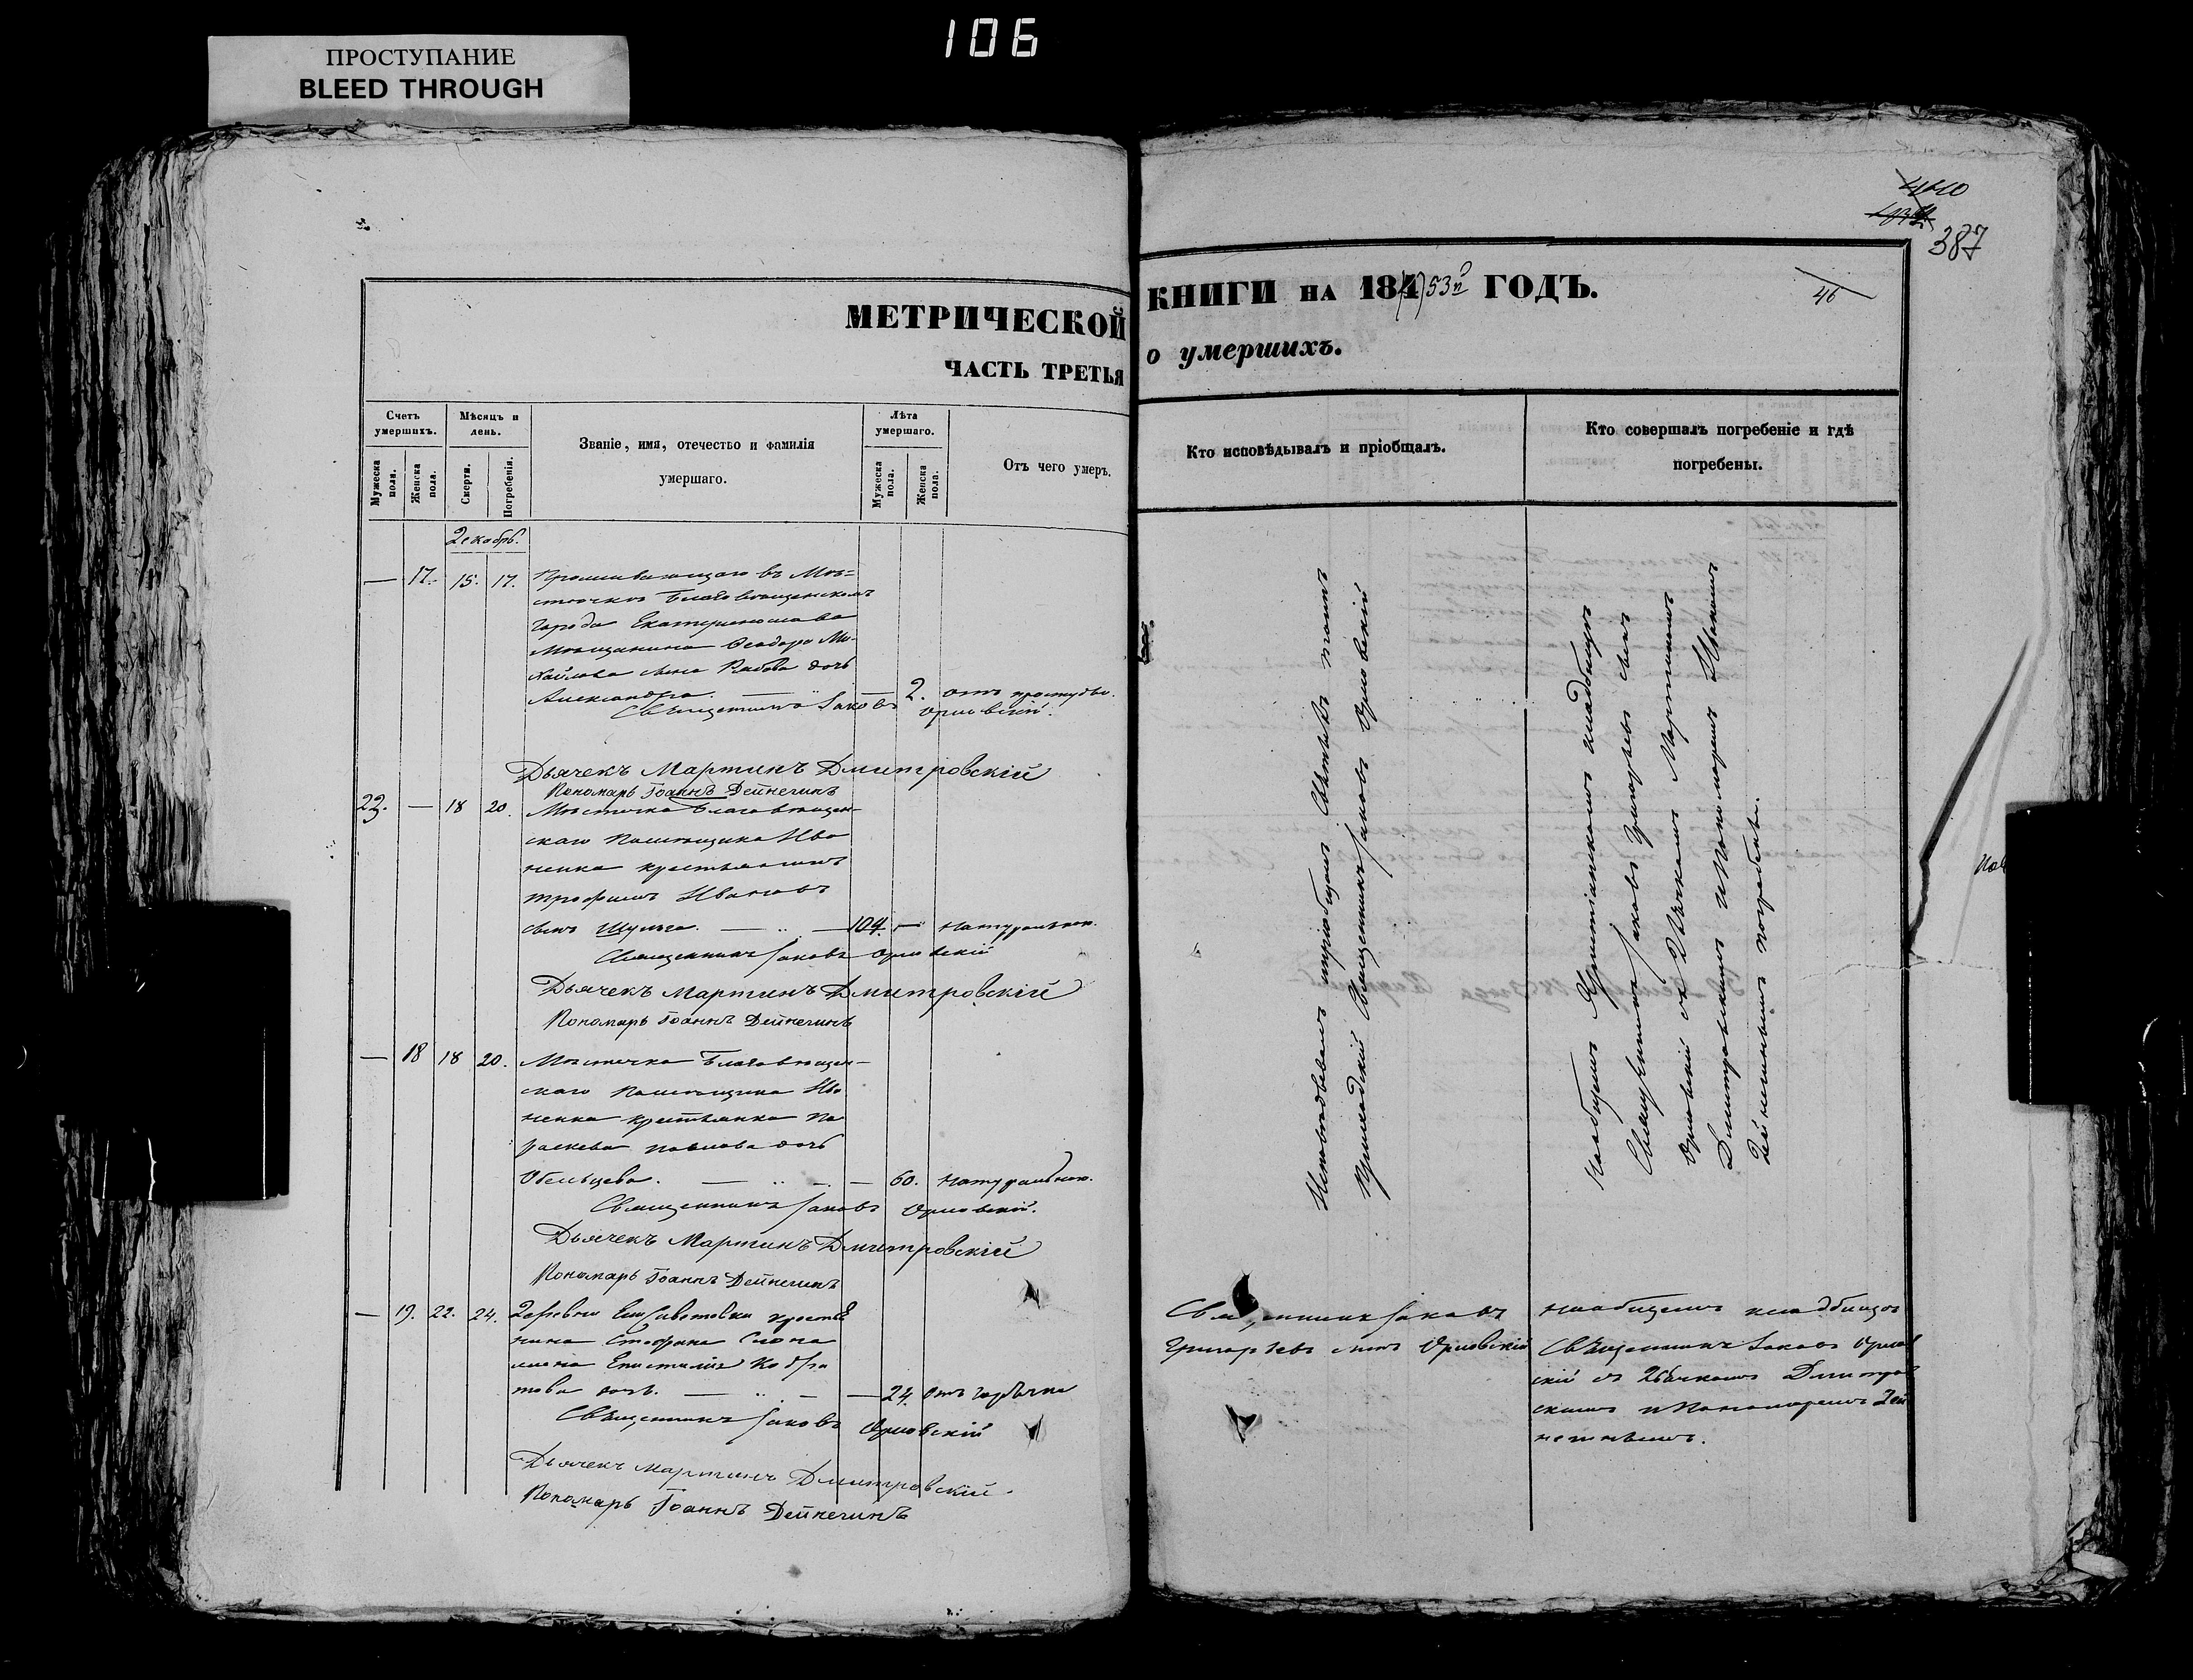 106
ПРОСТУПАНИЕ
BLEED THROUGH
387
46
МЕТРИЧЕСКОЙ КНИГИ НА 184 53й ГОДЪ.
ЧАСТЬ ТРЕТЬЯ о умершихъ.
Счетъ умершихъ.
Мужеска пола.
Женска пола.
Мѣсяцъ и день.
Смерти.
Погребенія.
Званіе, имя, отечество и фамилія
умершаго.
Лѣта умершаго.
Мужеска пола.
Женска пола.
Отъ чего умеръ.
Кто исповѣдывалъ и пріобщалъ.
Кто совершалъ погребеніе и гдѣ
погребены.
Декабрь.
— 17. 15. 17. Проживающаго въ Мѣ=
стечкѣ Благовѣщенскомъ
города Екатеринослава
Мѣщанина Ѳеодора Ми-
хайлова сына дочь
Александра. — 2. отъ простуды.
Священникъ Іаковъ Орловскій.
Дьячекъ Мартинъ Дмитровскій
Пономарь Іоаннъ Дейнегинъ
23. — 18 20. Мѣстечка Благовѣщен-
скаго Помѣщика Ива
ненка крестьянинъ
Трофимъ Ивановъ
сынъ Шульга. — 104. — натуральною.
Священникъ Іаковъ Орловскій
Дьячекъ Мартинъ Дмитровскій
Пономарь Іоаннъ Дейнегинъ
— 18 18 20. Мѣстечка Благовѣщен-
скаго Помѣщика Ива
ненка крестьянка Па
раскева Павлова дочь
— 60. натуральною.
Священникъ Іаковъ Орловскій.
Дьячекъ Мартинъ Дмитровскій
Пономарь Іоаннъ Дейнегинъ
— 19. 22. 24. Деревни Елисаветовки крестья
нина Стефана
жена Епистимія Кодра
това дочь. — 24. отъ горячки
Священникъ Іаковъ Орловскій
Дьячекъ Мартинъ Дмитровскій.
Пономарь Іоаннъ Дейнегинъ
Исповѣдывалъ и пріобщалъ Святыхъ таинъ
Приходскій Священникъ Іаковъ Орловскій
На общемъ Христіанскомъ кладбищѣ
Священникъ Іаковъ Григорьевъ сынъ
Орловскій съ Дьячкомъ Мартиномъ
Дмитровскимъ и Пономаремъ Іоанномъ
Дейнегинымъ погребены.
Священникъ Іаковъ
Григорьевъ сынъ Орловскій
На общемъ кладбищѣ
Священникъ Іаковъ Орлов
скій съ Дьячкомъ Дмитров
скимъ и Пономаремъ Дей
негинымъ.